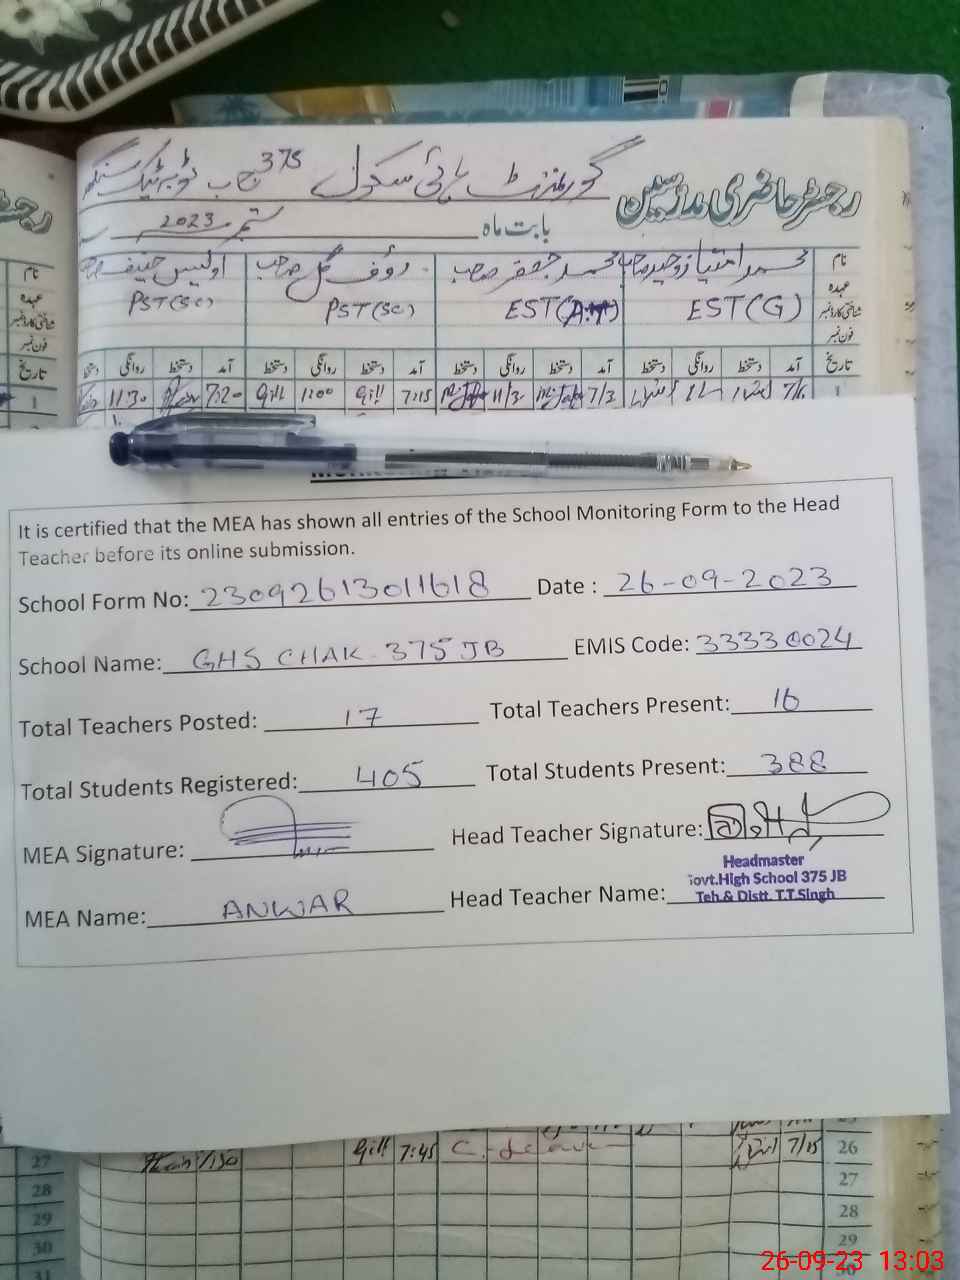 گورنمنٹ ہائی سکول 375 ج ب ٹوبہ ٹیک سنگھ
رجسٹر حاضری مدرسین
بابت ماہ ستمبر 2023
نام محمد امتیاز وحید صاحب محمد جعفر صاحب رؤف گل صاحب اویس حنیف
عہدہ EST(G) EST PST(SC) PST(SC)
شناختی کارڈ نمبر
فون نمبر
تاریخ آمد دستخط روانگی دستخط آمد دستخط روانگی دستخط آمد دستخط روانگی دستخط آمد دستخط روانگی
1 7/3 11/3 7:15 Gill 11:00 Gill 7:20 11:30
It is certified that the MEA has shown all entries of the School Monitoring Form to the Head
Teacher before its online submission.
School Form No: 23092613011618 Date : 26-09-2023
School Name: GHS CHAK 375 JB EMIS Code: 33330024
Total Teachers Posted: 17 Total Teachers Present: 16
Total Students Registered: 405 Total Students Present: 388
MEA Signature: Head Teacher Signature:
Headmaster
Govt.High School 375 JB
Teh.& Distt. T.T.Singh
MEA Name: ANWAR Head Teacher Name:
26 7/15 C. Leave 7:45 Gill
27 27
28 28
29 29
30 30
31
26-09-23 13:03